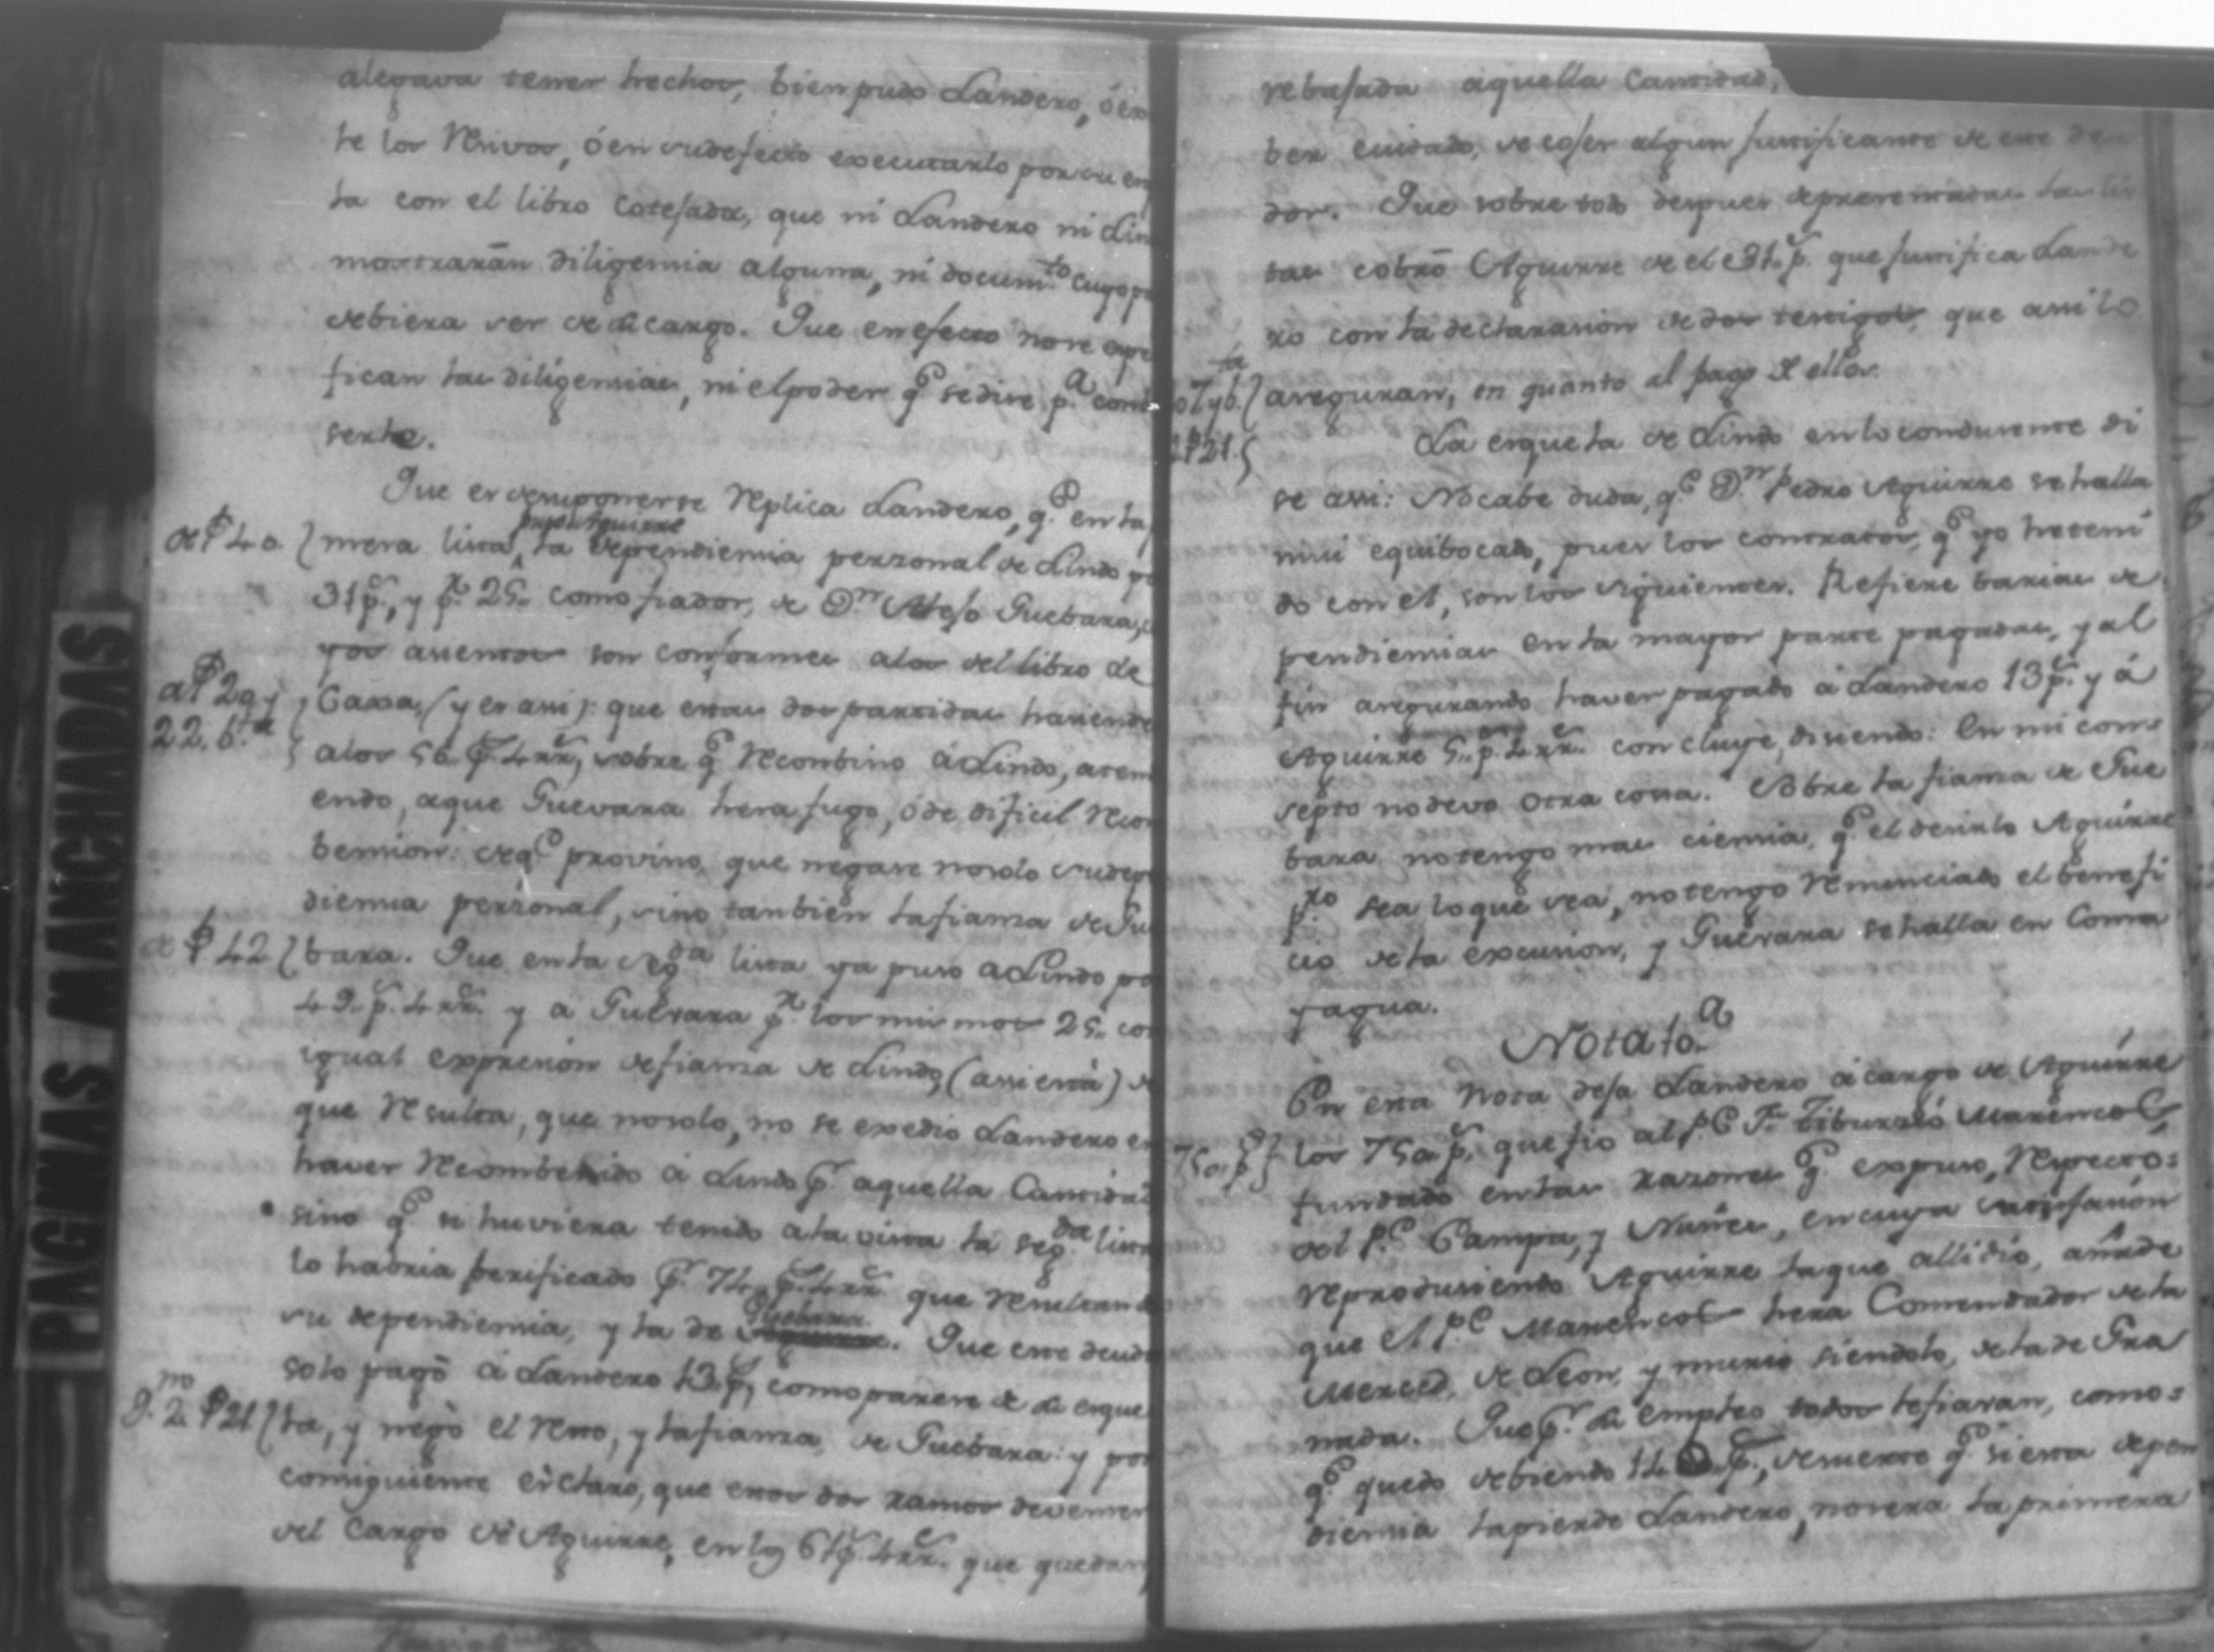 alegava tener hechos, bien pudo Landero, ó en
te los Rēivos, ó en su defecto executarlo por su
ta con el libro cotejada, que ni Landero ni Lin
mostrarān diligencia alguna, ni docum.to cuyo
debiera ser de su cargo. Que en efecto no se
fican las diligencias, ni el poder q.e se dise p.a
serlo.
Que es de suponerse Replica Landero, q.e en la
a f 40. mera lista, puso Aguirre la dependiencia perzonal de Lindo
31 p.s, y p.r 25. como fiador, de D.n Alejo Guebara,
yos asientos son conformes a los del libro de
a f 29 y Caxa, (y es assi): que estas dos partidas hasiende
22. b.ta a los 56. p.s 4 rr.s, sobre q.e Recombino á Lindo, aten
endo, a que Guevara hera fugo, ó de dificil Recon
bension: de q.e provino, que negase no solo su depen
diencia perzonal, sino tanbien la fianza de Gu
a f 42 bara. Que en la seg.da lista ya puso a Lindo
49. p.s 4 rr.s y a Guevara p.r los mismos 25. co
igual expresion de fianza de Lindo, (assi está) de
que Resulta, que no solo, no se exedio Landero en
haver Recombenido á Lindo p.r aquella Cantidad
sino q.e si huviera tenido a la vista la seg.da lista
lo habria berificado p.r 74. p.s 4 rr.s que Resultan de
su dependiencia, y la de Guebara. Que este deudo
solo pagō á Landero 13 p.s, como parese de su esque
P.no 2. f 21 la, y negō el Resto, y la fianza de Guebara: y por
consiguiente es claro, que estos dos ramos deven ser
del cargo de Aguirre, en los 61 p.s 4 rr.s que quedan
rebajada aquella Cantidad,
ber cuidado, de coser algun justificante de este deu
dor. Que sobre todo despues de presentadas las lis
tas cobrō Aguirre de el 31. p.s que justifica Lande
ro con la declarasion de dos testigos, que assi lo
aseguran, en quanto al pago de ellos.
f 21. La esquela de Lindo en lo condusente di
se assi: No cabe duda, q.e D.n Pedro Aguirre se halla
mui equibocado, pues los contratos, q.e yo he teni
do con el, son los siguientes. Refiere barias de
pendiencias en la mayor parte pagadas, y al
fin asegurando haver pagado á Landero 13 p.s y á
Aguirre 5.. p.s 4 rr.s concluye, disiendo: En mi con
septo no devo otra cosa. Sobre la fianza de Gue
bara no tengo mas ciencia, q.e el desirlo Aguirre
p.ro sea lo que sea, no tengo Renunciado el benefi
cio de la excusion, y Guevara se halla en Coma
yagua.
Nota 10.a
En esta Nota deja Landero á cargo de Aguirre
750. p.s los 750. p.s que fio al P.e Fr. Tiburcio Marenco,
fundado en las razones q.e expuso, Respecto
del P.e Campa, y Nuñes, en cuya
Reprodusiendo Aguirre la que alli dio, añade
que el P.e Marenco hera Comendador de la
Merced, de Leon, y murio siendolo, de la de Gra
nada. Que p.r su empleo todos le fiavan, como
q.e quedo debiendo p.s, de suerte q.e si esta depen
diencia la pierde Landero, no sera la primera